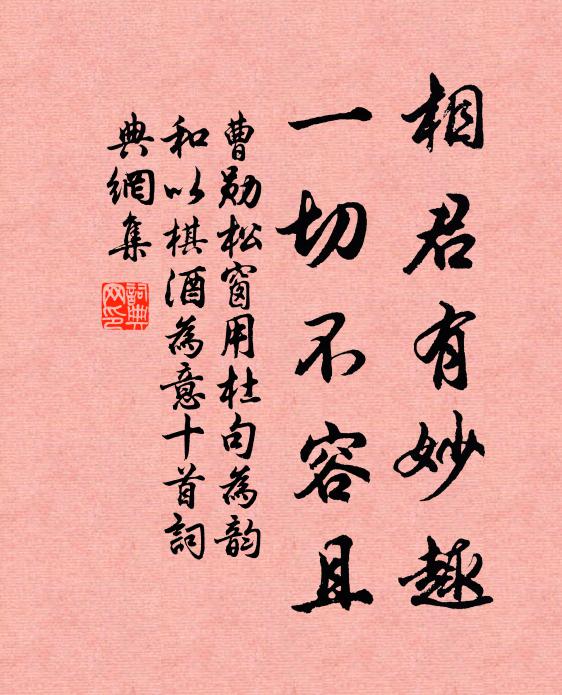 相君有妙趣
一切不容且
曹勋松窗用杜句為韵
和以棋酒為意十首詞
典網集
詞典
网印